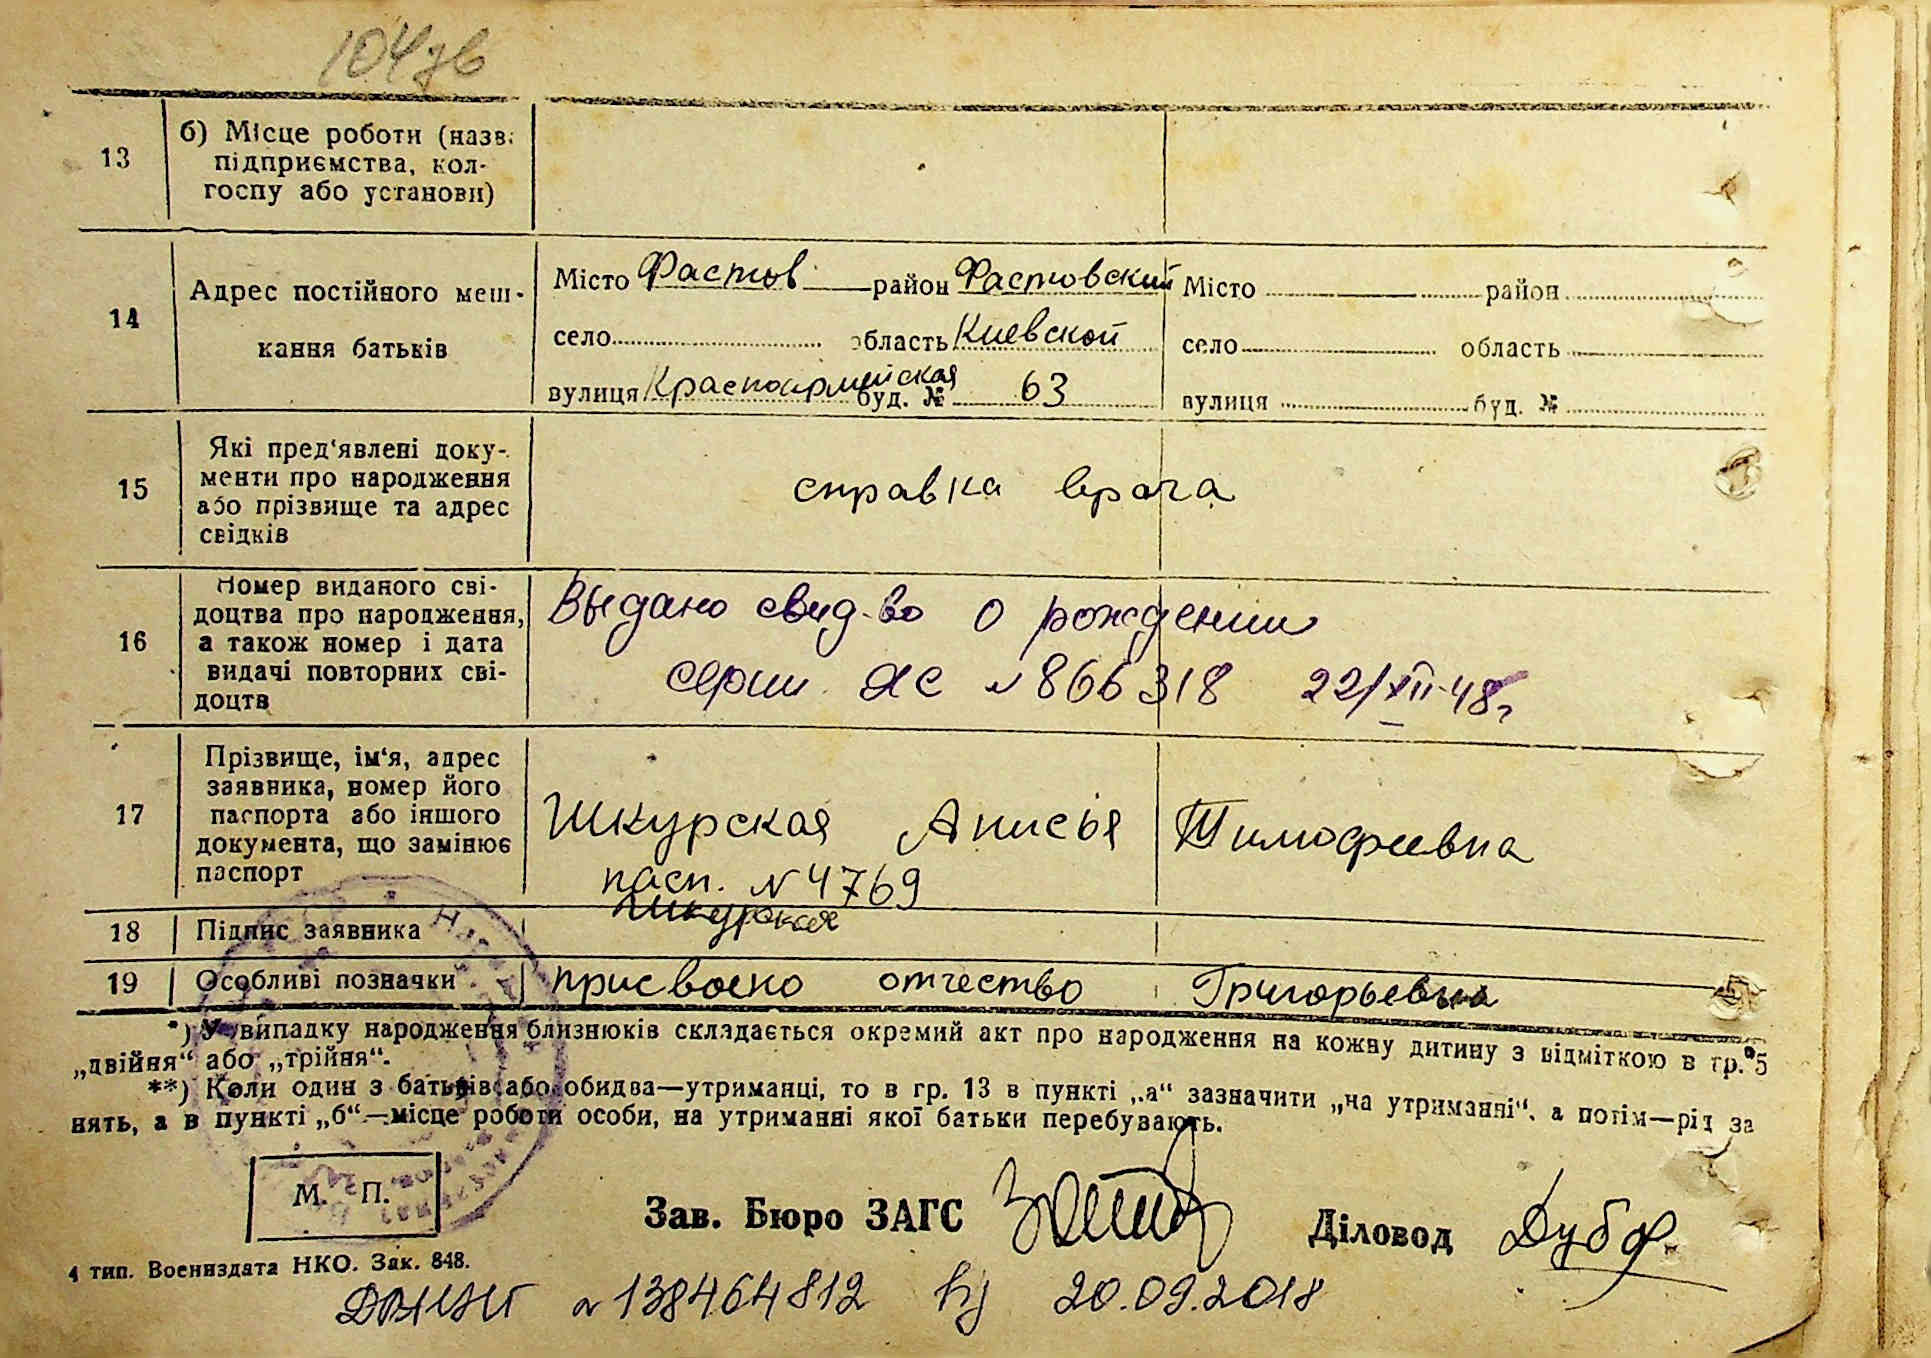 104зв
13
б) Місце роботи (назв.
підприємства, кол-
госпу або установи)
14
Адрес постійного меш-
кання батьків
Місто Фастов район Фастовский
село область Киевской
вулиця Красноармейская буд. № 63
Місто район
село область
вулиця буд. №
15
Які пред'явлені доку-
менти про народження
або прізвище та адрес
свідків
справка врача
16
Номер виданого сві-
доцтва про народження,
а також номер і дата
видачі повторних сві-
доцтв
Выдано свид-во о рождении
серии ЯС № 866318 22/XII-48г
17
Прізвище, ім'я, адрес
заявника, номер його
паспорта або іншого
документа, що замінює
паспорт
Шкурская Анисья Тимофеевна
пасп. № 4769
18
Підпис заявника
Шкурская
19
Особливі позначки
присвоено отчество Григорьевна
*) У випадку народження близнюків складається окремий акт про народження на кожну дитину з відміткою в гр. 5
„двійня“ або „трійня“.
**) Коли один з батьків або обидва—утриманці, то в гр. 13 в пункті „а“ зазначити „на утриманні“, а потім—рід за
нять, а в пункті „б“—місце роботи особи, на утриманні якої батьки перебувають.
М. П.
Зав. Бюро ЗАГС
Діловод
4 тип. Воениздата НКО. Зак. 848.
№ 138464812 20.09.2018